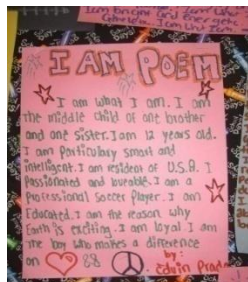 I AM POEM
I am what I am. I am
the middle child of one brother
and one sister. I am 12 years old.
I am particulary smart and
intelligent. I am resident of U.S.A. I
passionated and loveable. I am a
Professional Soccer Player. I am
Educated. I am the reason why
Earth is exciting. I am loyal. I am
the boy who makes a difference
on
by:
Edwin